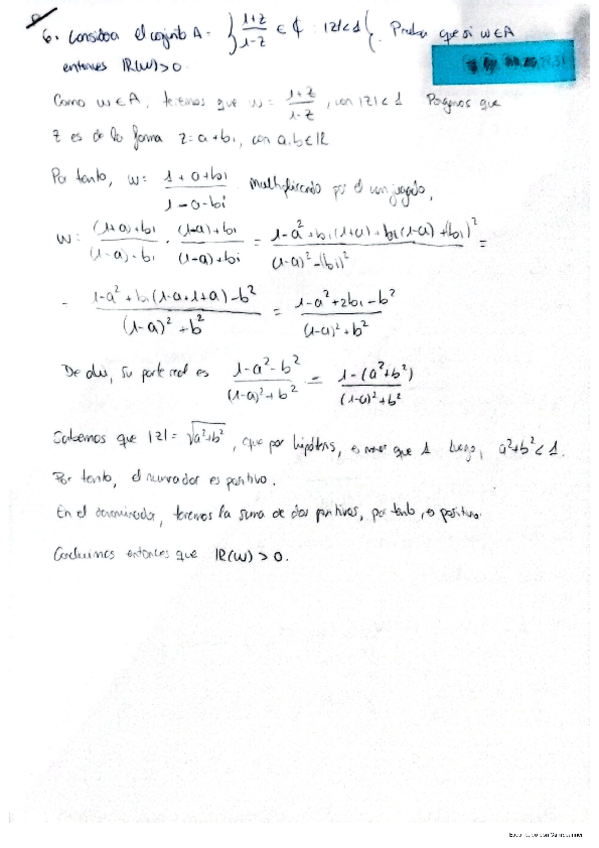 6. Considera el conjunto A = { (1+z)/(1-z) ∈ ℂ : |z|<1 }. Probar que si w∈A
entonces IR(w)>0.
Como w∈A, tenemos que w = (1+z)/(1-z), con |z|<1 Pongamos que
z es de la forma z=a+bi, con a,b∈IR
Por tanto, w = (1+a+bi)/(1-a-bi) multiplicando por el conjugado,
w = ((1+a)+bi)/((1-a)-bi) · ((1-a)+bi)/((1-a)+bi) = (1-a²+bi(1+a)+bi(1-a)+(bi)²)/((1-a)²-(bi)²) =
= (1-a²+bi(1-a+1+a)-b²)/((1-a)²+b²) = (1-a²+2bi-b²)/((1-a)²+b²)
De ahí, su parte real es (1-a²-b²)/((1-a)²+b²) = (1-(a²+b²))/((1-a)²+b²)
Sabemos que |z| = √(a²+b²), que por hipótesis, es menor que 1 luego, a²+b²<1.
Por tanto, el numerador es positivo.
En el denominador, tenemos la suma de dos positivos, por tanto, es positivo.
Concluimos entonces que IR(w)>0.